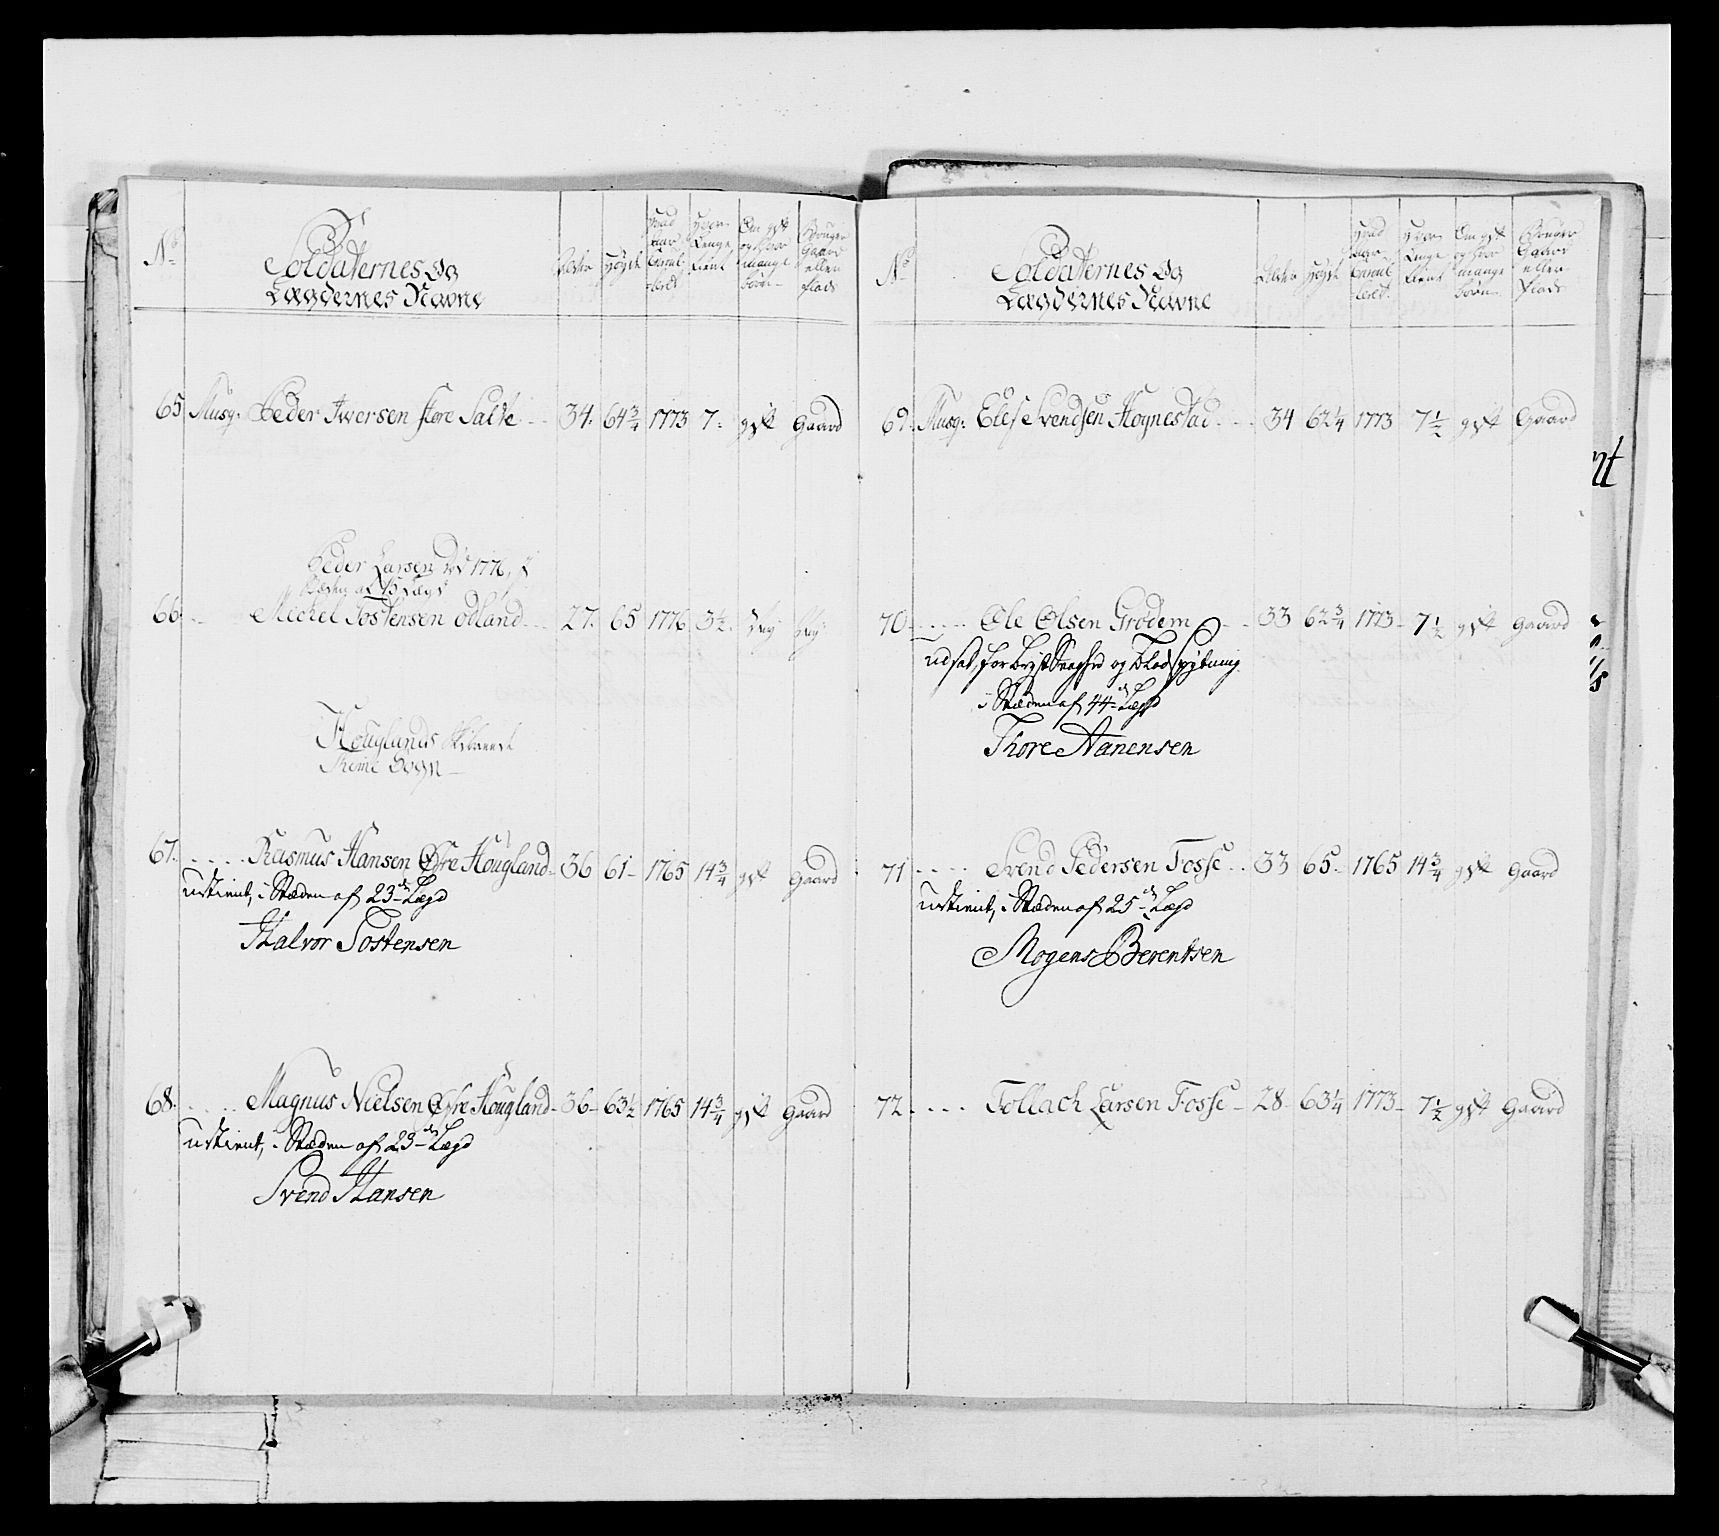 No
Soldaternes og
Lægdernes Navne
Alder
Høyde
Hvad
Aar
Enrul-
leret
Hvor
Lenge
tient
Om gift
og hvor
mange
børn
Bruger
Gaard
eller
Plads
65 Musq: Peder Iwersen store Salte - - 34. 64 3/4 1773 7 - gift Gaard
Peder Larsen død 1776, i
Stæden af 15 Lægd
66 - - Michel Tostensen Odland - - 27. 65 1776 3 1/2
Houglands
Time Sogn -
67. . . . . Rasmus Hansen Øfre Hougland - 36 61 - 1765 14 3/4 gift Gaard
udtient, i Stæden af 23de Lægd
Halvor Tostensen
68. . . . . Magnus Nielsen Øfre Hougland - 36 - 63 1/2 1765 14 3/4 gift Gaard
udtient, i Stæden af 23de Lægd
Svend Hansen
No
Soldaternes og
Lægdernes Navne
Alder
Høyde
Hvad
Aar
Enrul-
leret
Hvor
Lenge
tient
Om gift
og hvor
mange
børn
Bruger
Gaard
eller
Plads
69. Musq: Elef Svendsen Høgnestad - - - 34 62 1/4 1773 7 1/2 gift Gaard
70 - . . . . Ole Olsen Grødem - - 33 62 3/4 1773 - 7 1/2 gift Gaard
udsat, for bryst Svaghed og Blod Spÿtning
i Stæden af 44de Lægd
Thore Aanensen
71 . . . . Svend Pedersen Fosse - - 33 65 - 1765 14 3/4 gift Gaard
udtient, i Stæden af 25de Lægd
Mogens Berentsen
72 . . . . Tollach Larsen Fosse - 28 - 63 1/4 1773 - 7 1/2 gift Gaard